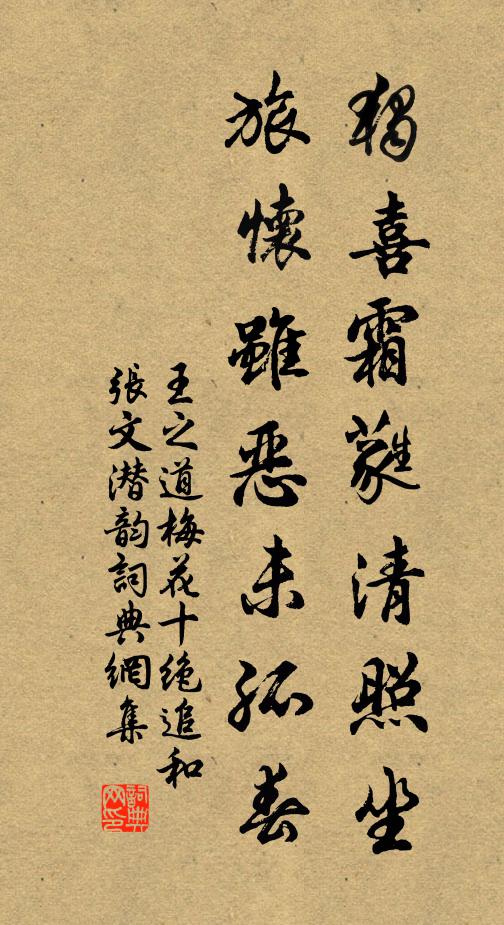 獨喜霜蕤清照坐
旅懷雖惡未孤春
王之道梅花十絶追和
張文潜韵詞典網集
詞典網印